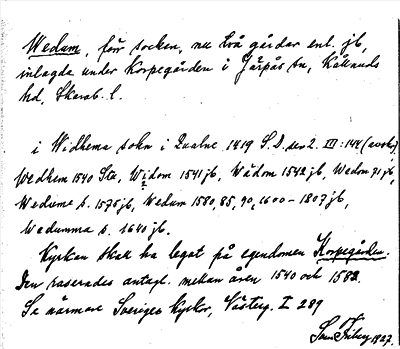 Wedum, förr socken, nu två gårdar enl. jb,
inlagda under Korpegården i Järpås sn, Kållands
hd, Skarab. l.
i Widhema sokn i Qvalne 1419 S.D. ser 2. III:144 (avskr),
Wedhem 1540 Ste, Widom 1541 jb, Wådom 1542 jb, Wedom 71 jb,
Wedume s. 1575 jb, Wedum 1580, 85, 90, 1600–1807 jb,
Wedumma s. 1640 jb.
Kyrkan skall ha legat på egendomen Korpegården.
Den raserades antagl. mellan åren 1540 och 1582.
Se närmare Sveriges Kyrkor, Västerg. I 289
1927.